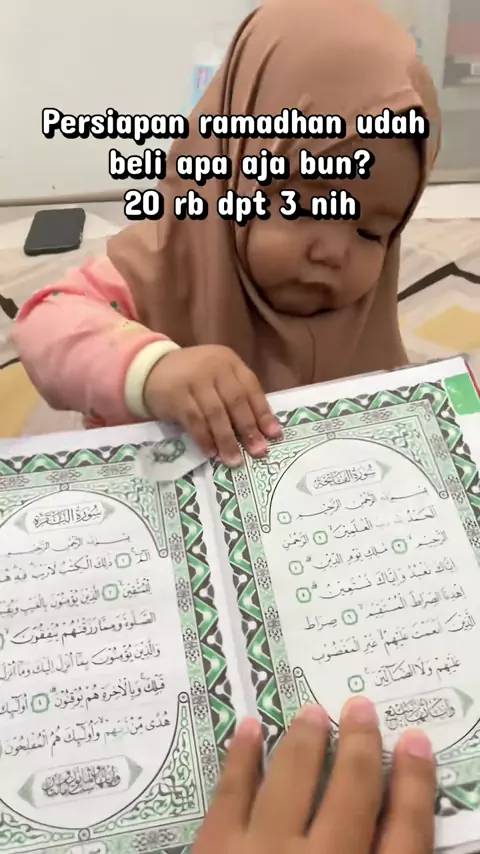 Persiapan ramadhan udah
beli apa aja bun?
20 rb dpt 3 nih
سورة الفاتحة
بسم الله الرحمن الرحيم ١
الحمد لله رب العلمين ٢ الرحمن
الرحيم ٣ ملك يوم الدين ٤
إياك نعبد وإياك نستعين ٥
اهدنا الصراط المستقيم ٦ صراط
الذين أنعمت عليهم غير المغضوب
عليهم ولا الضالين ٧
سورة البقرة
بسم الله الرحمن الرحيم
الم ١ ذلك الكتب لا ريب فيه
للمتقين ٢ الذين يؤمنون بالغيب
الصلوة ومما رزقنهم ينفقون ٣
والذين يؤمنون بما أنزل إليك وما أنزل
قبلك وبالآخرة هم يوقنون ٤ أولئك
هدى من ربهم وأولئك هم المفلحون